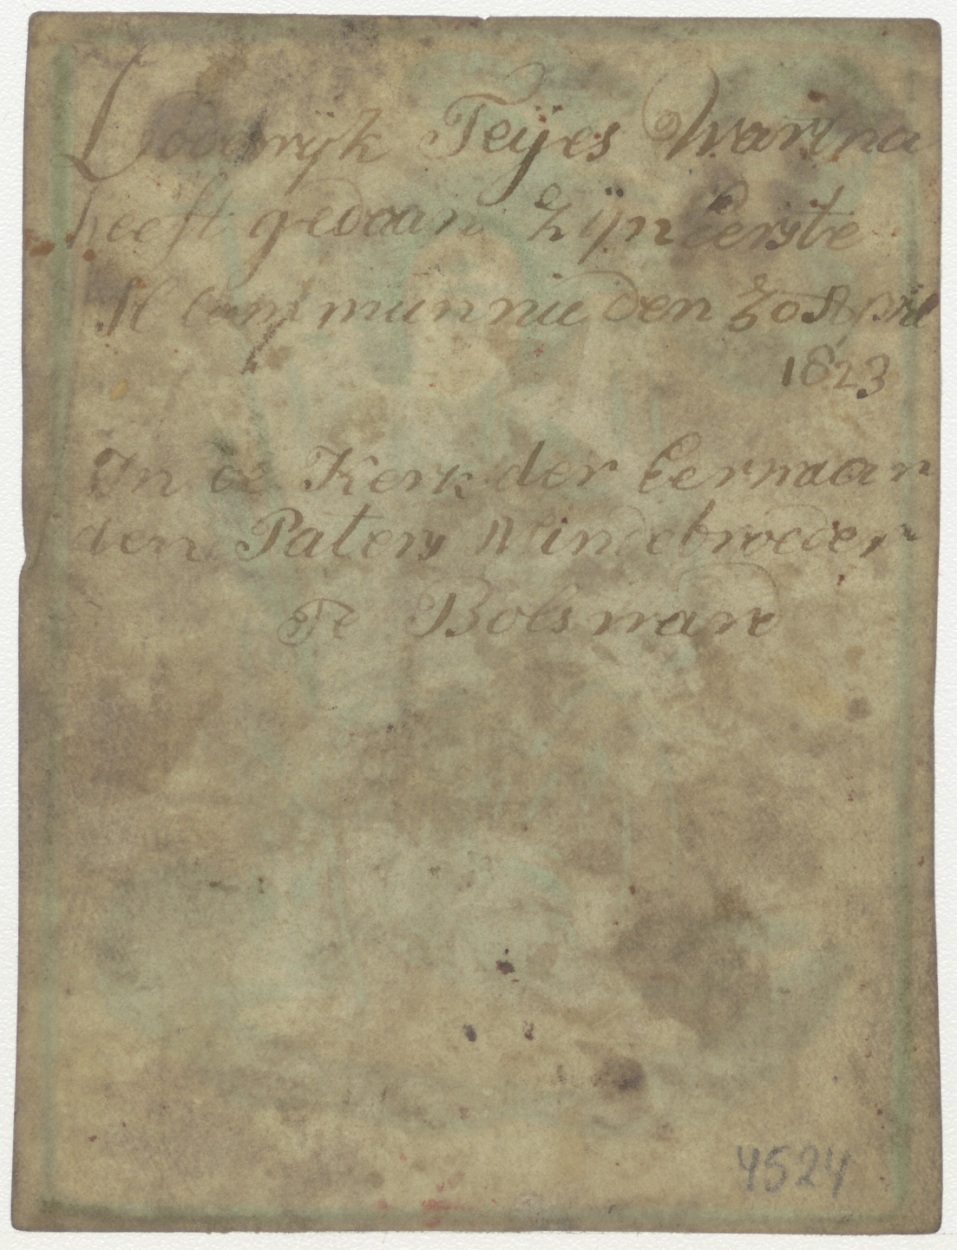 Lodewijk Teijes Warina
heeft gedaan Zijn Eerste
H Communnie den 30 April
1823
In de Kerk der Eerwaar
den Paters Mindebroeder
Te Bolswaro
4524